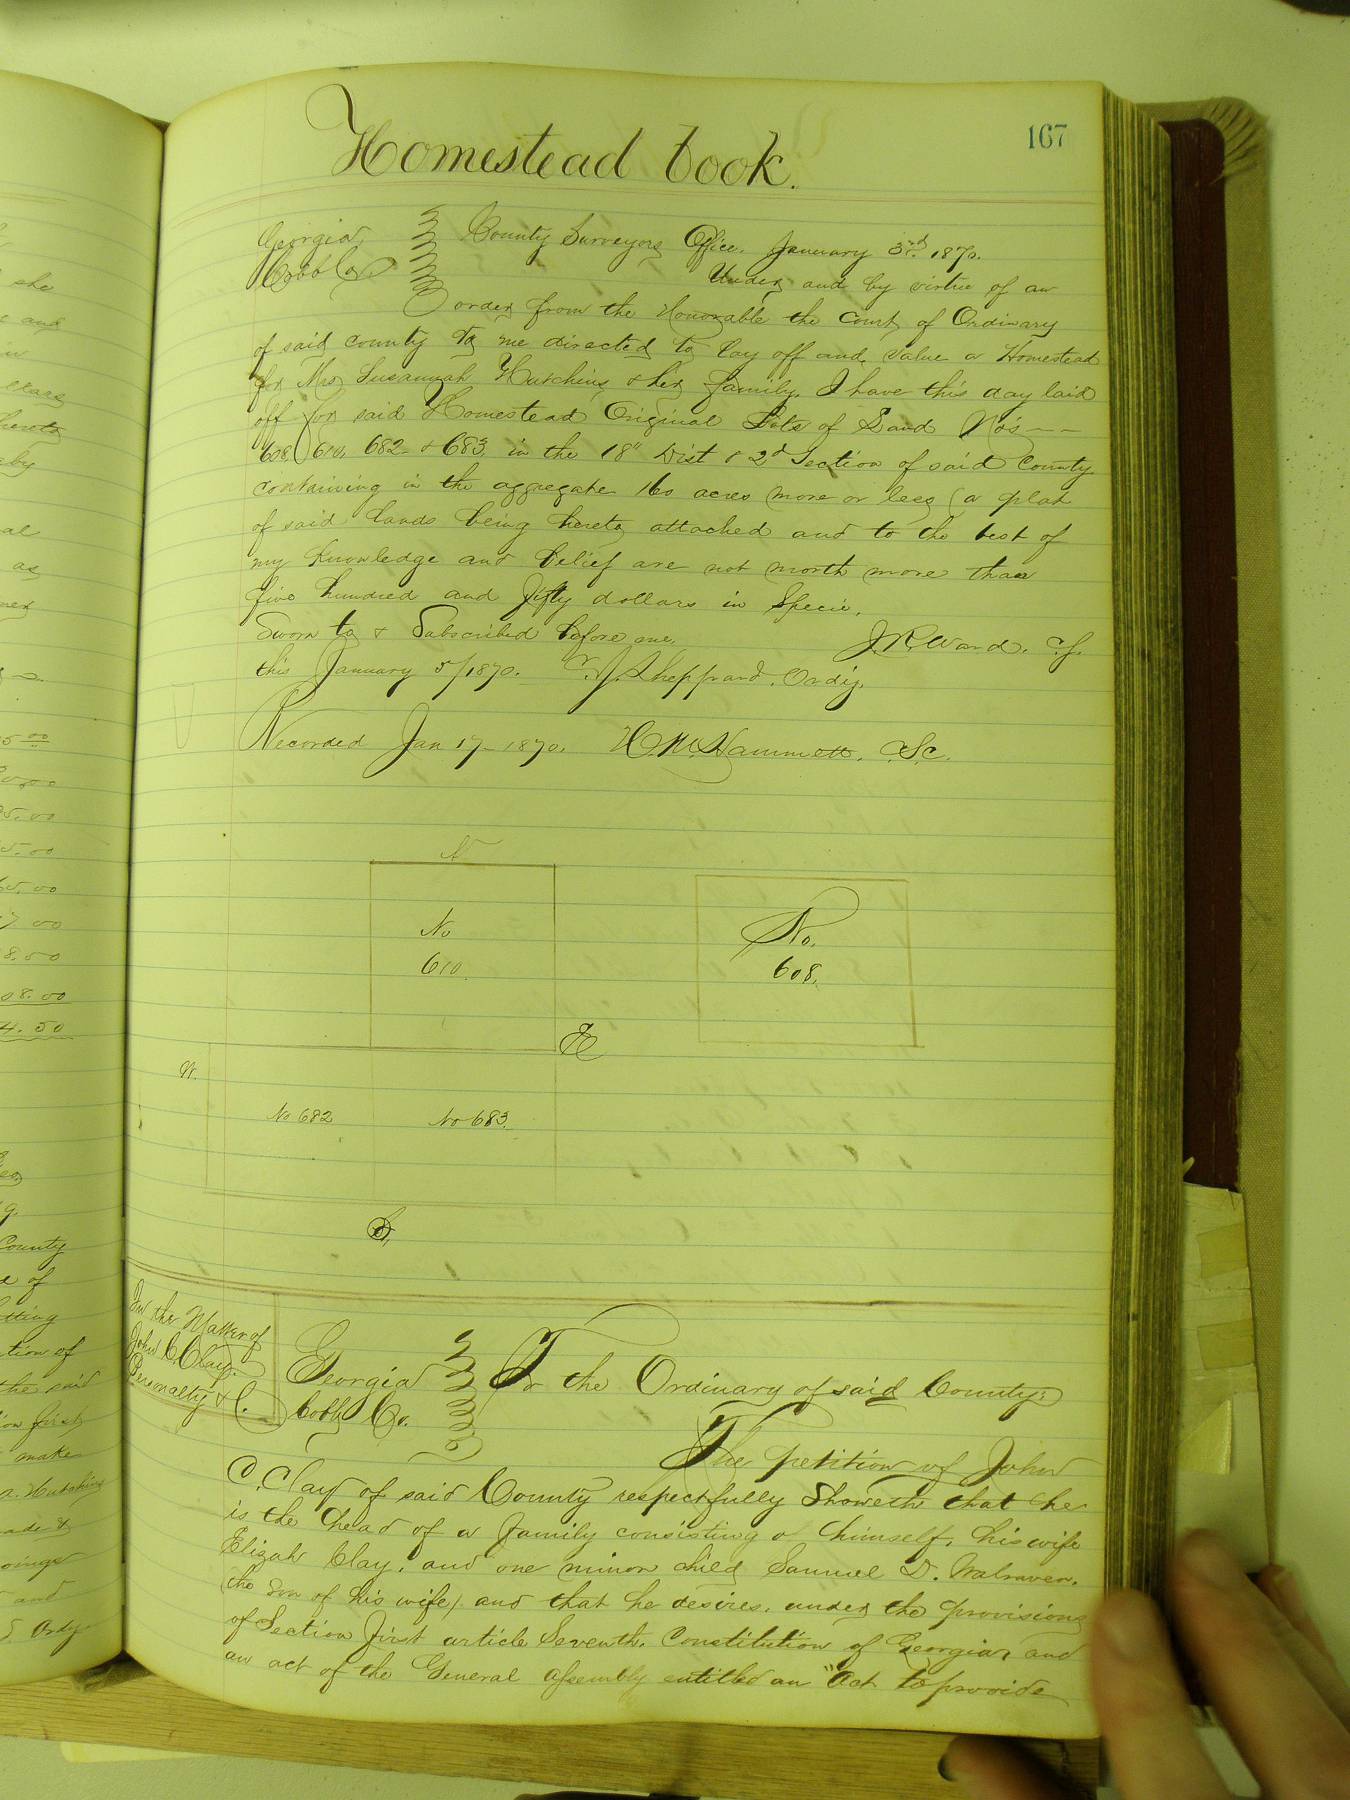 167
Homestead book.
Georgia County Surveyors Office. January 3rd. 1870.
Cobb Co Under and by virtue of an
order from the Honorable the Court of Ordinary
of said county to me directed to lay off and value a Homestead
for Mrs Susannah Hutchins & her family. I have this day laid
off for said Homestead Original Lots of Land Nos — —
608, 610, 682 & 683 in the 18" Dist & 2d Section of said County
containing in the aggregate 160 acres more or less (a plat
of said lands being hereto attached and to the best of
my knowledge and belief are not worth more than
five hundred and fifty dollars in Specie.
Sworn to & Subscribed before me, J. R. Ward. C.S.
this January 5/1870. Sheppard. Ordy.
Recorded Jan 17 - 1870. H. M. Hammett. C.S.C.
N
No
610.
No.
608.
E
W.
No 682
No 683.
S,
In the Matter of
John C Clay.
Personalty &C.
Georgia To the Ordinary of said County:
Cobb Co.
The petition of John
C. Clay of said County respectfully Showeth that he
is the head of a family consisting of himself, his wife
Elizah Clay, and one minor child Samuel D. Walraven.
(the son of his wife) and that he desires, under the provisions
of Section first article Seventh. Constitution of Georgia, and
an act of the General assembly entitled an "Act to provide
she
and
hereto
as
County
of
tion of
the said
first
make
Hutchins
and
Ordy
5 00
5.00
5.00
7 00
8.50
08.00
4.50